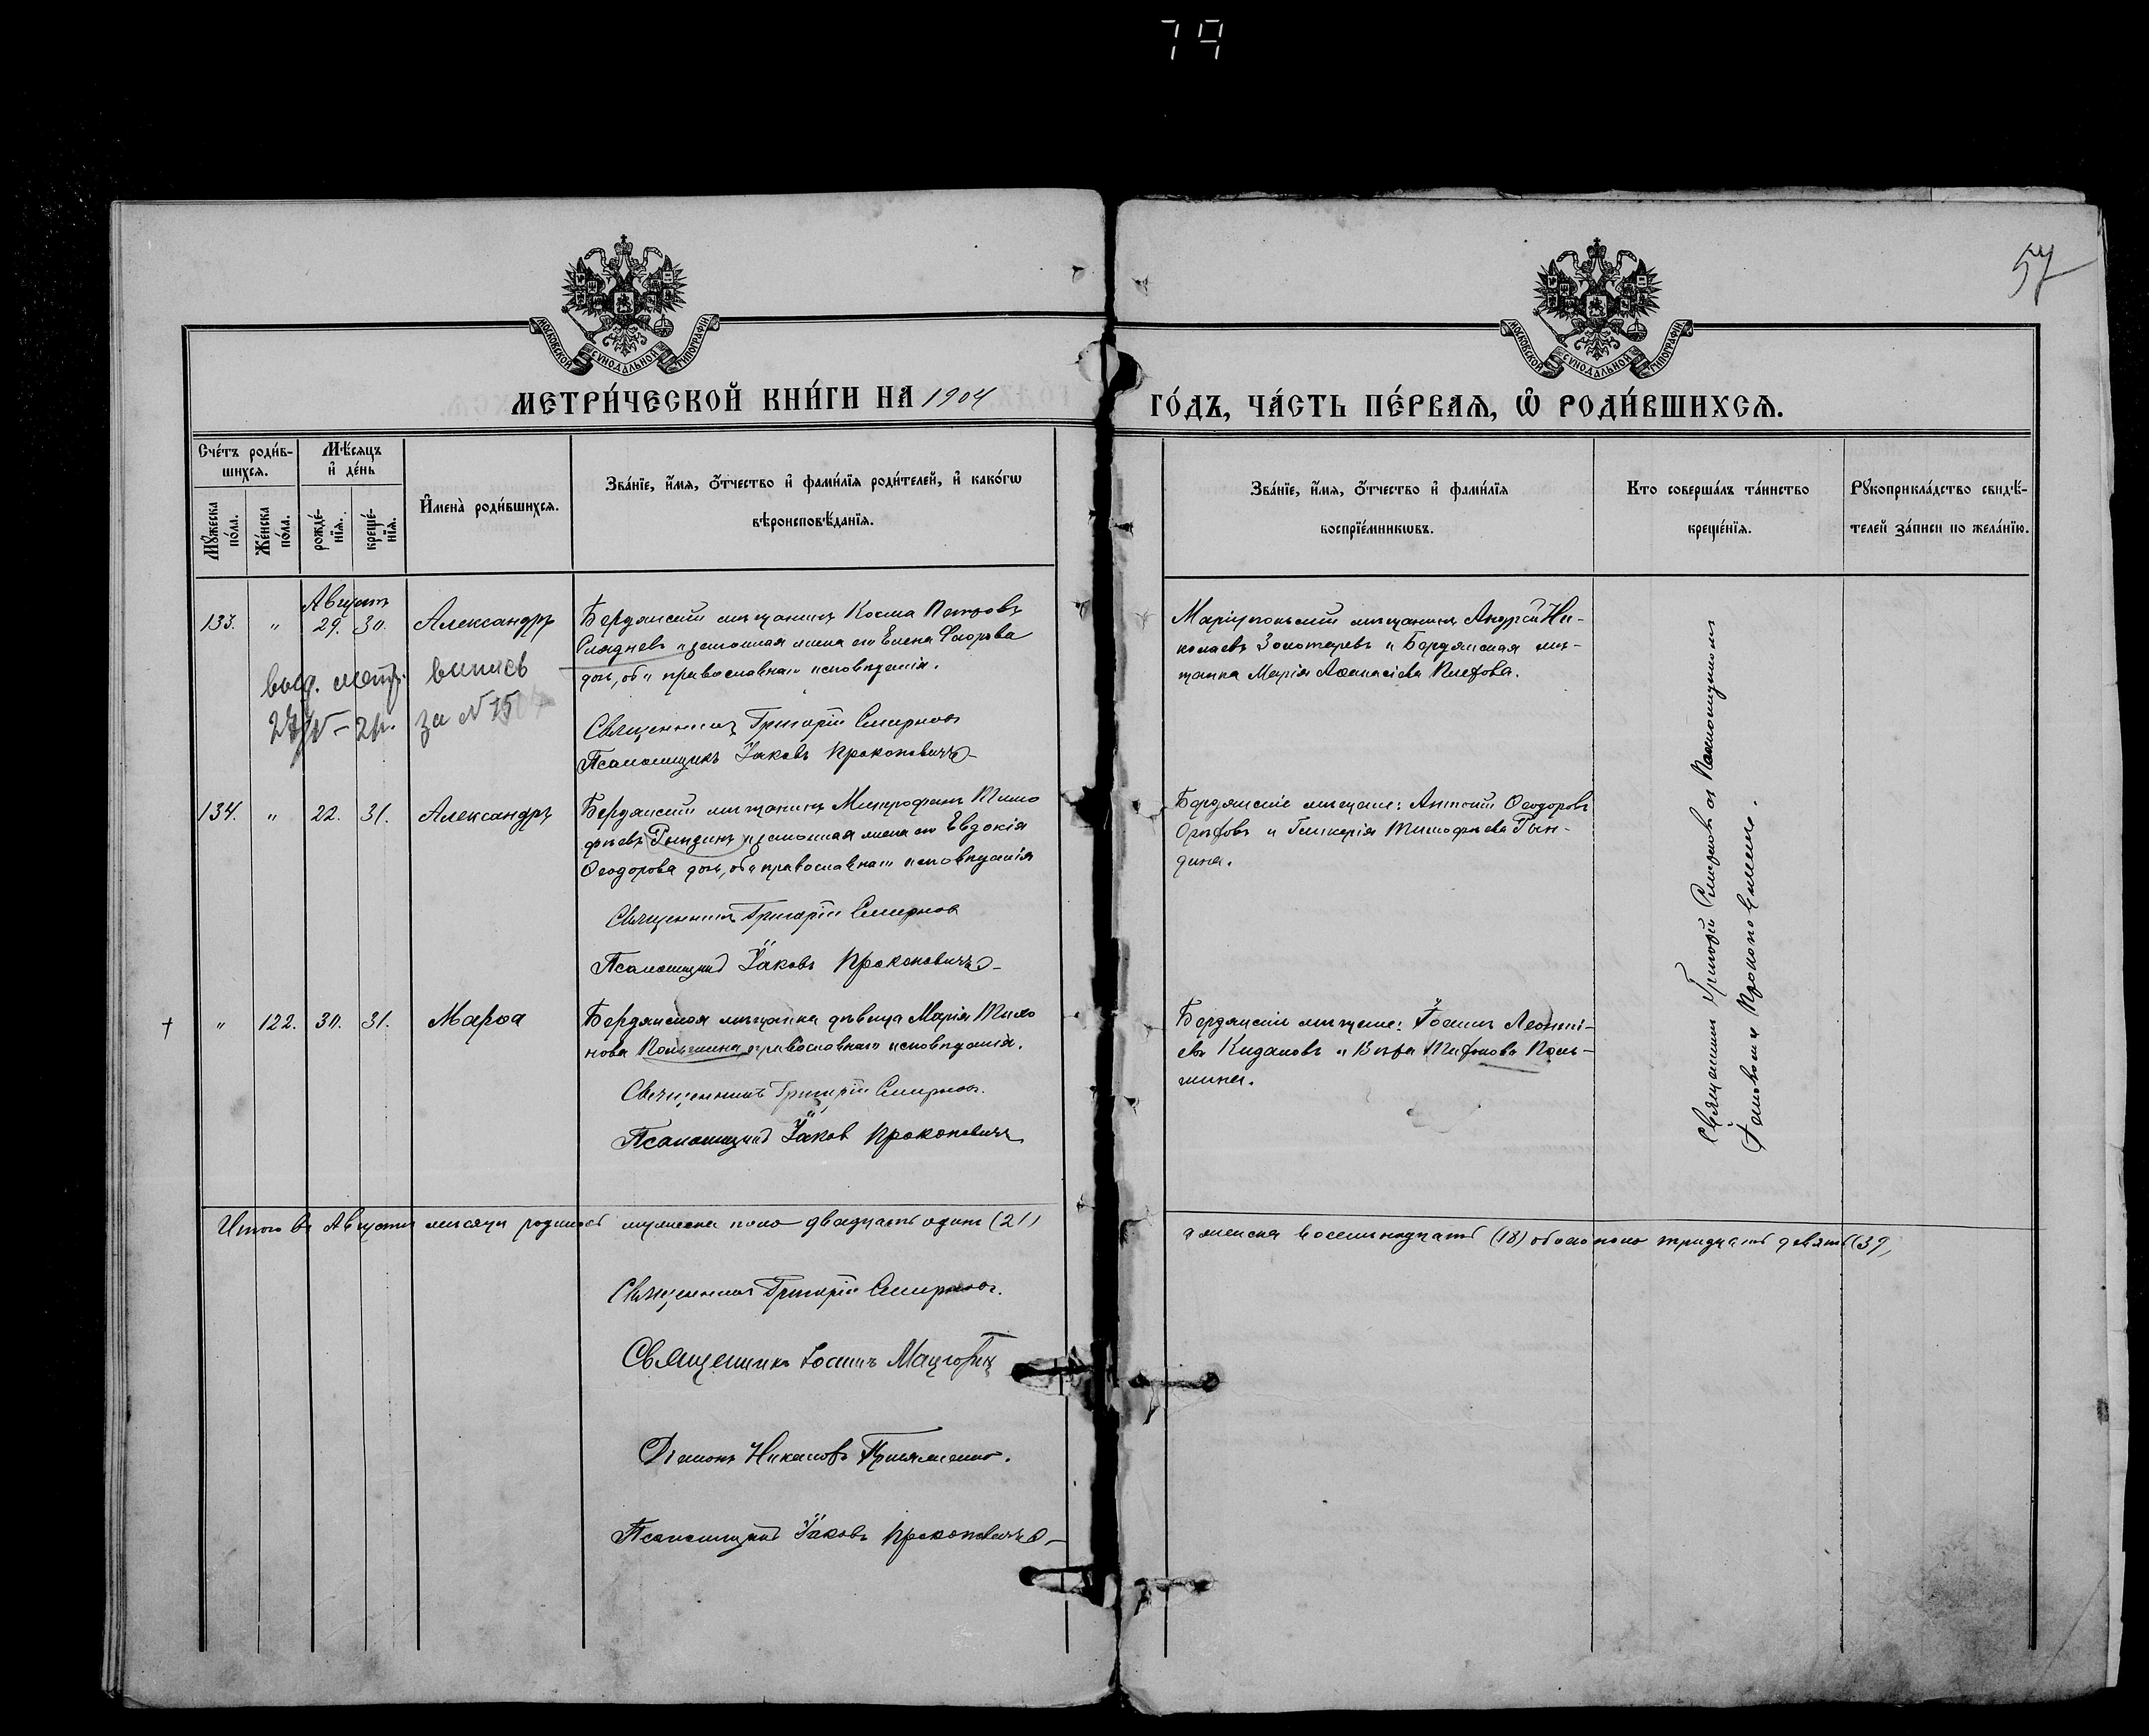 79
57
МОСКОВСКОЙ СУНОДАЛЬНОЙ ТИПОГРАФІИ
МОСКОВСКОЙ СУНОДАЛЬНОЙ ТИПОГРАФІИ
МЕТРИ́ЧЕСКОЙ КНИ́ГИ НА 1904
ГО́ДЪ, ЧА́СТЬ ПЕ́РВАЯ, Ѡ҆ РОДИ́ВШИХСЯ.
Сче́тъ роди́в-
шихся.
Му́жеска
по́ла.
Же́нска
по́ла.
Мѣ́сяцъ
и҆ де́нь
рожде́-
нїя.
креще́-
нїя.
И҆мена̀ роди́вшихся.
Зва́нїе, и҆́мя, ѻ҆́тчество и҆ фами́лїя роди́телей, и҆ како́гѡ
вѣроисповѣ́данїя.
Зва́нїе, и҆́мя, ѻ҆́тчество и҆ фами́лїя
воспрїе́мникѡвъ.
Кто соверша́лъ та́инство
креще́нїя.
Рꙋкоприкла́дство свидѣ́-
телей за́писи по жела́нїю.
Августъ
133. " 29. 30. Александръ
Бердянскій мѣщанинъ Косма Петровъ
и законная жена его Елена
православнаго исповѣданія.
выд. метр. выпись
за N 15
Священникъ Григорій Смирновъ
Псаломщикъ Іаковъ Прокоповичъ
Маріупольскій мѣщанинъ Андрей Ни-
колаевъ Золотаревъ и Бердянская мѣ-
щанка Марія Аѳанасіева
134. " 22. 31. Александръ
Бердянскій мѣщанинъ Митрофанъ Тимо
ѳеевъ Гындинъ и законная жена его Евдокія
Ѳеодорова православнаго исповѣданія
Священникъ Григорій Смирновъ
Псаломщикъ Іаковъ Прокоповичъ
Бердянскіе мѣщане: Антоній Ѳеодоровъ
Орѣховъ и Гликерія Тимофѣева Гын-
дина.
† " 122. 30. 31. Марѳа
Бердянская мѣщанка дѣвица Марія
православнаго исповѣданія.
Священникъ Григорій Смирновъ.
Псаломщикъ Іаковъ Прокоповичъ
Бердянскіе мѣщане: Іоаннъ Леонті-
евъ Кидаловъ и Вѣра
Священникъ Григорій Смирновъ съ Псаломщикомъ
Іаковомъ Прокоповичемъ.
Итого въ Августѣ мѣсяцѣ родилось мужеска пола двадцать одинъ (21)
а женска восемнадцать (18) обоего пола тридцать девять (39)
Священникъ Григорій Смирновъ.
Священникъ Іоаннъ
Діаконъ Никаноръ
Псаломщикъ Іаковъ Прокоповичъ